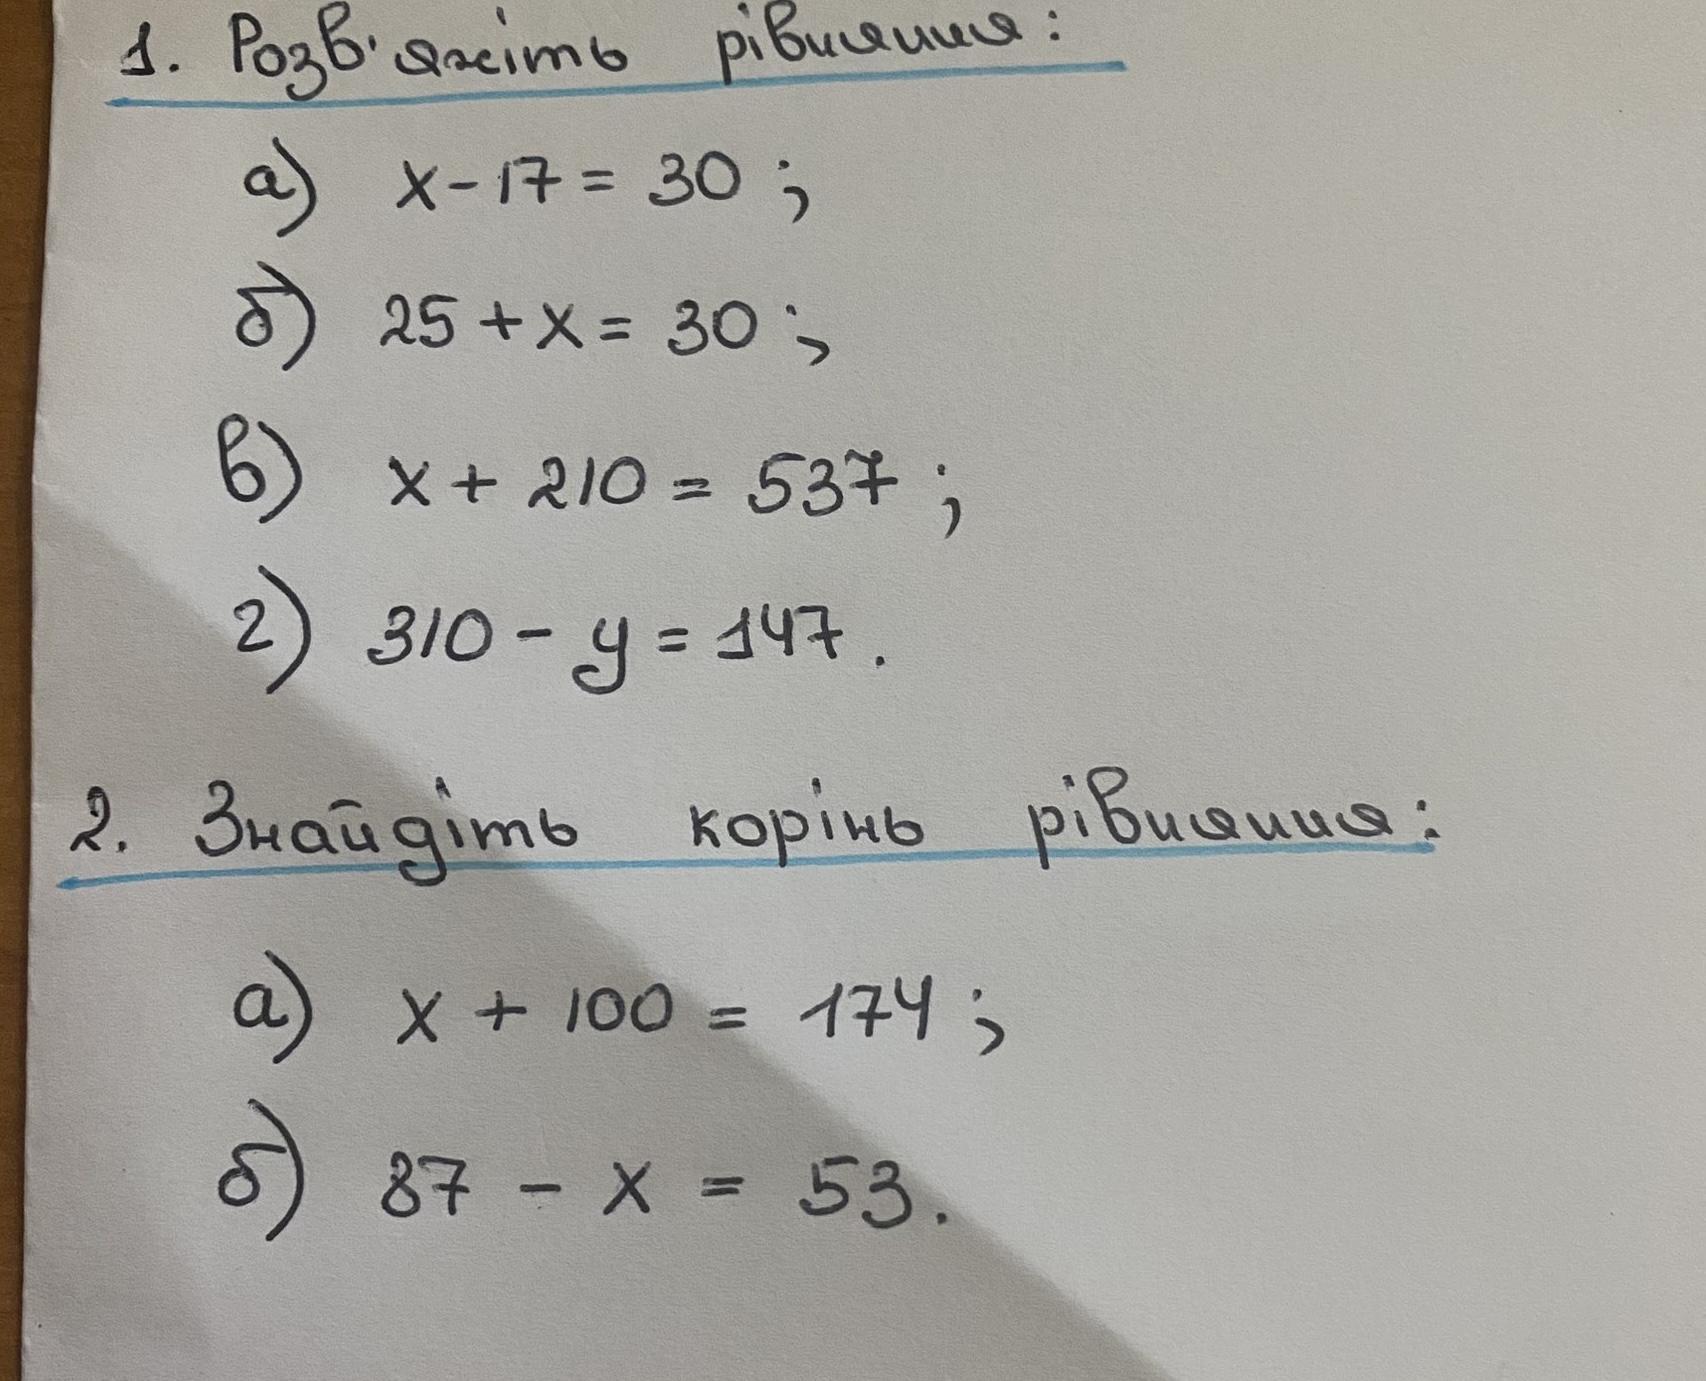 1. Розв'яжіть рівняння:
а) x - 17 = 30 ;
б) 25 + x = 30 ;
в) x + 210 = 537 ;
г) 310 - y = 147 .
2. Знайдіть корінь рівняння:
а) x + 100 = 174 ;
б) 87 - x = 53 .